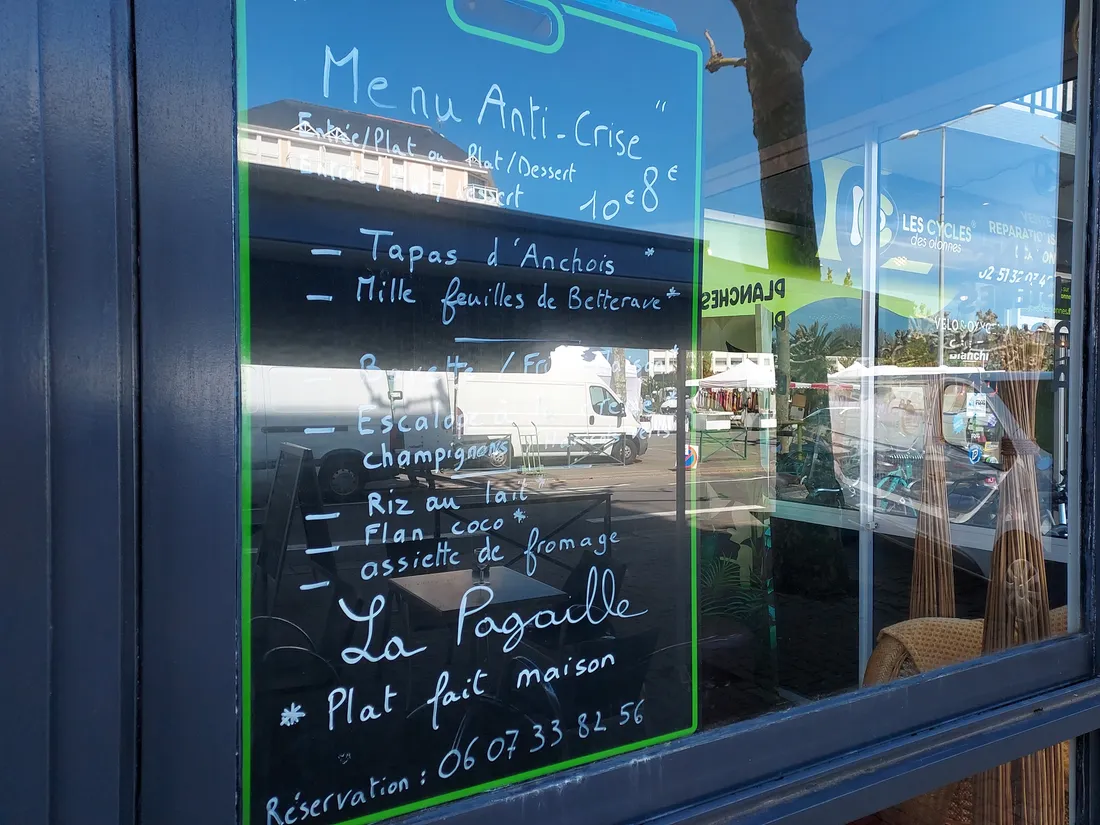 Menu Anti-Crise "
Entrée/Plat ou Plat/Dessert 8€
Entrée/Plat/Dessert 10€
- Tapas d'Anchois *
- Mille feuilles de Betterave *
- Escalope
champignons
- Riz au lait *
- Flan coco *
- assiette de fromage
La Pagaille
* Plat fait maison
Réservation : 06 07 33 82 56
PLANCHES
LES CYCLES
des olonnes
REPARATIONS
02 51 32
Bianchi